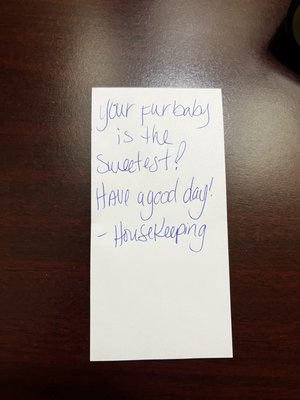 Your furbaby
is the
sweetest!
Have a good day!
- Housekeeping